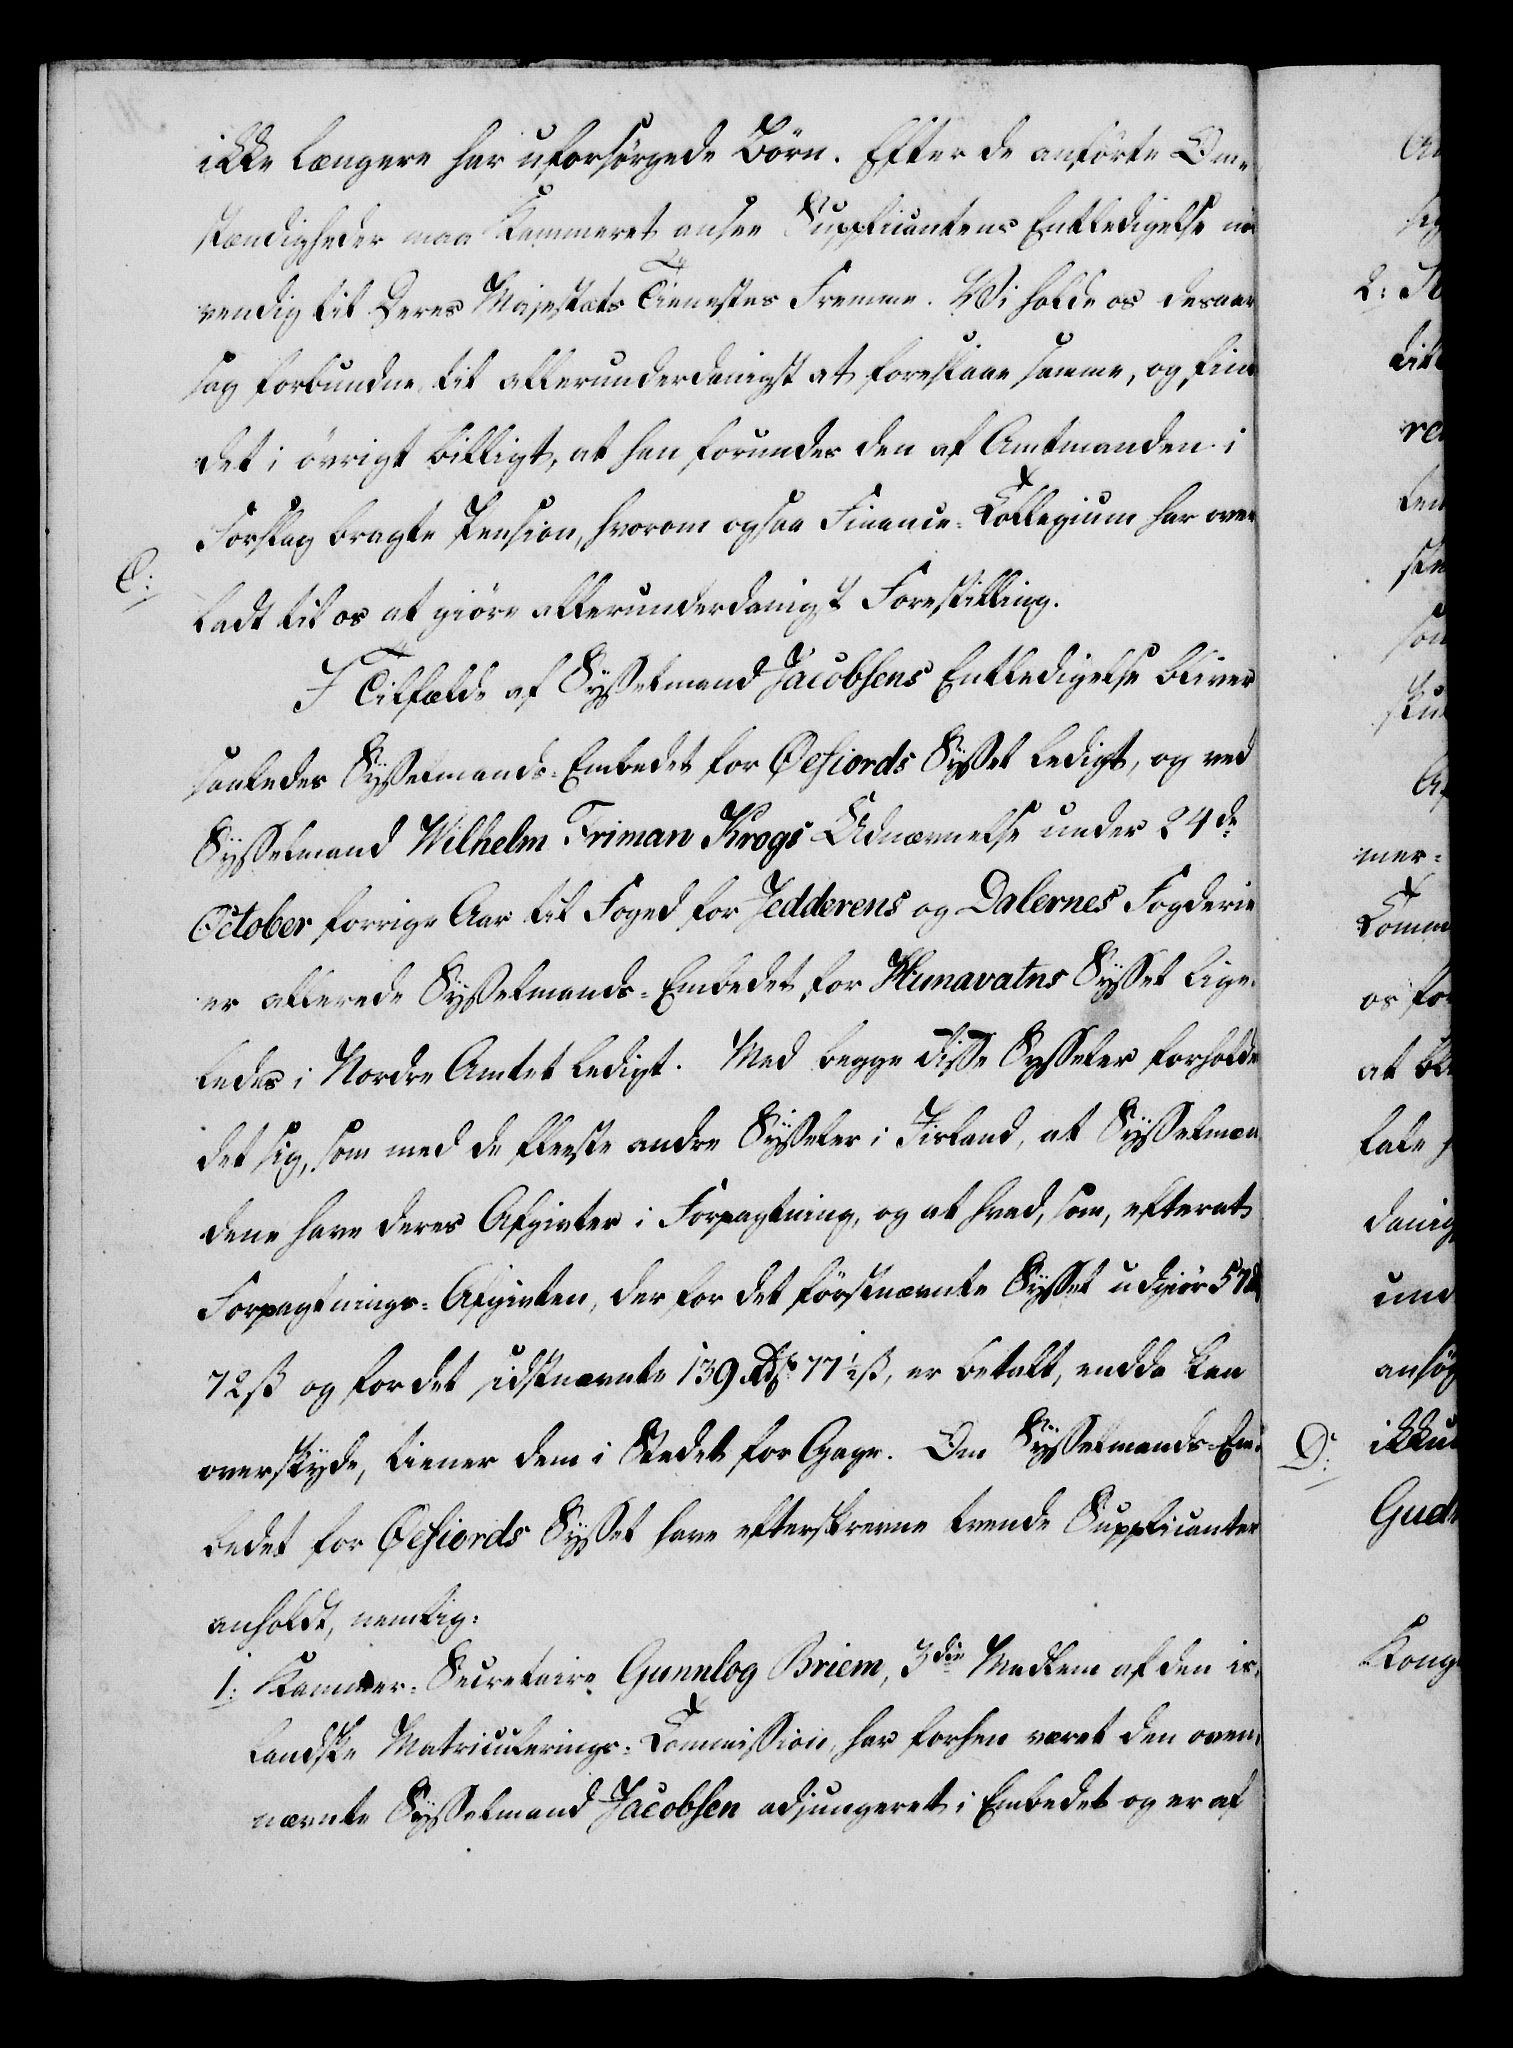 ikke længere har uforsørgede Börn. Efter de anførte Om-
stændigheder maa Kammeret ansee Supplicantens Entledigelse nö
vendig til Deres Majestæts Tienestes Fremme. Vi holde os desaar
sag forbundne til allerunderdanigst at foreslaae samme, og fin
det i övrigt billigt, at han forundes den af Amtmanden i
Forslag bragte Pension, hvorom ogsaa Finance-Collegium har over
C:
ladt til os at giöre allerunderdanigst Forestilling.
I Tilfælde af Sysselmand Jacobsens Entledigelse bliver
saaledes Sysselmands-Embedet for Öefiords Syssel ledigt, og ved
Sysselmand Wilhelm Friman Krogs Udnævnelse under 24de
October forrige Aar til Foged for Jedderens og Dalernes Fogderie
er allerede Sysselmands-Embedet for Hunavatns Syssel lige-
ledes i Nordre Amtet ledigt. Med begge disse Sysseler forholde
det sig, som med de fleeste andre Sysseler i Island, at Sysselmæn
dene have deres Afgivter i Forpagtning, og at hvad, som, efterat
Forpagtnings-Afgivten, der for det förstnævnte Syssel udgiör 57
72ß og for det sidstnævnte 139 Rdlr 77½ß, er betalt, endda kan
overskyde, tiener dem i Stedet for Gage. Om Sysselmands-Em-
bedet for Öefiords Syssel have efterskrevne trende Supplicanter
anholdt, nemlig:
1: Kammer-Secretaire Gunnlog Briem, 3die Medlem af den is-
landske Matriculerings-Commission, har forhen været den oven-
nævnte Sysselmand Jacobsen adjungeret i Embedet og er af
2:
mer-
os for
at
D:
Gud
Kong